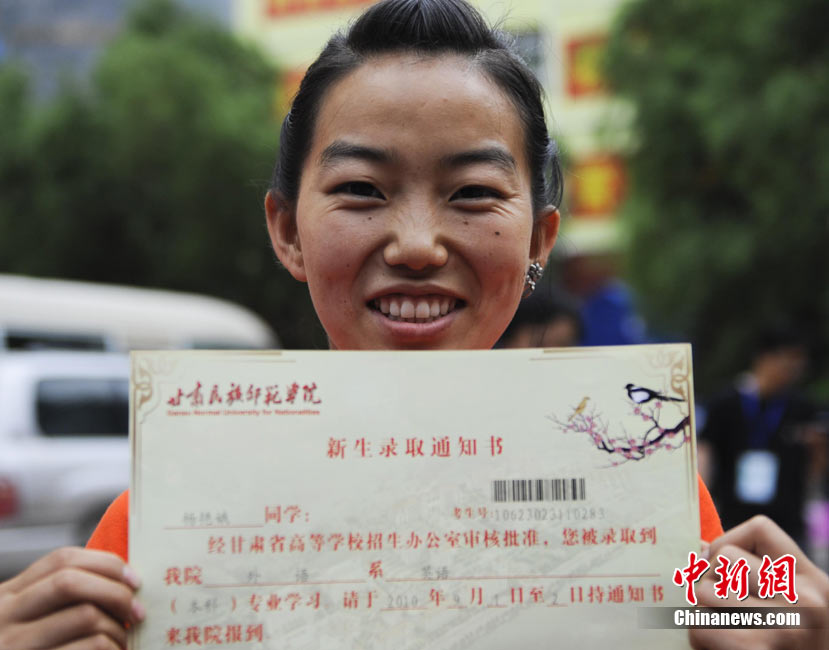 甘肃民族师范学院
Gansu Normal University for Nationalities
新生录取通知书
同学： 考生号:10623023110283
经甘肃省高等学校招生办公室审核批准，您被录取到
我院 外 语 系 英语
（本科）专业学习．请于2010年9月1日至2日持通知书
来我院报到．
中新网
Chinanews.com